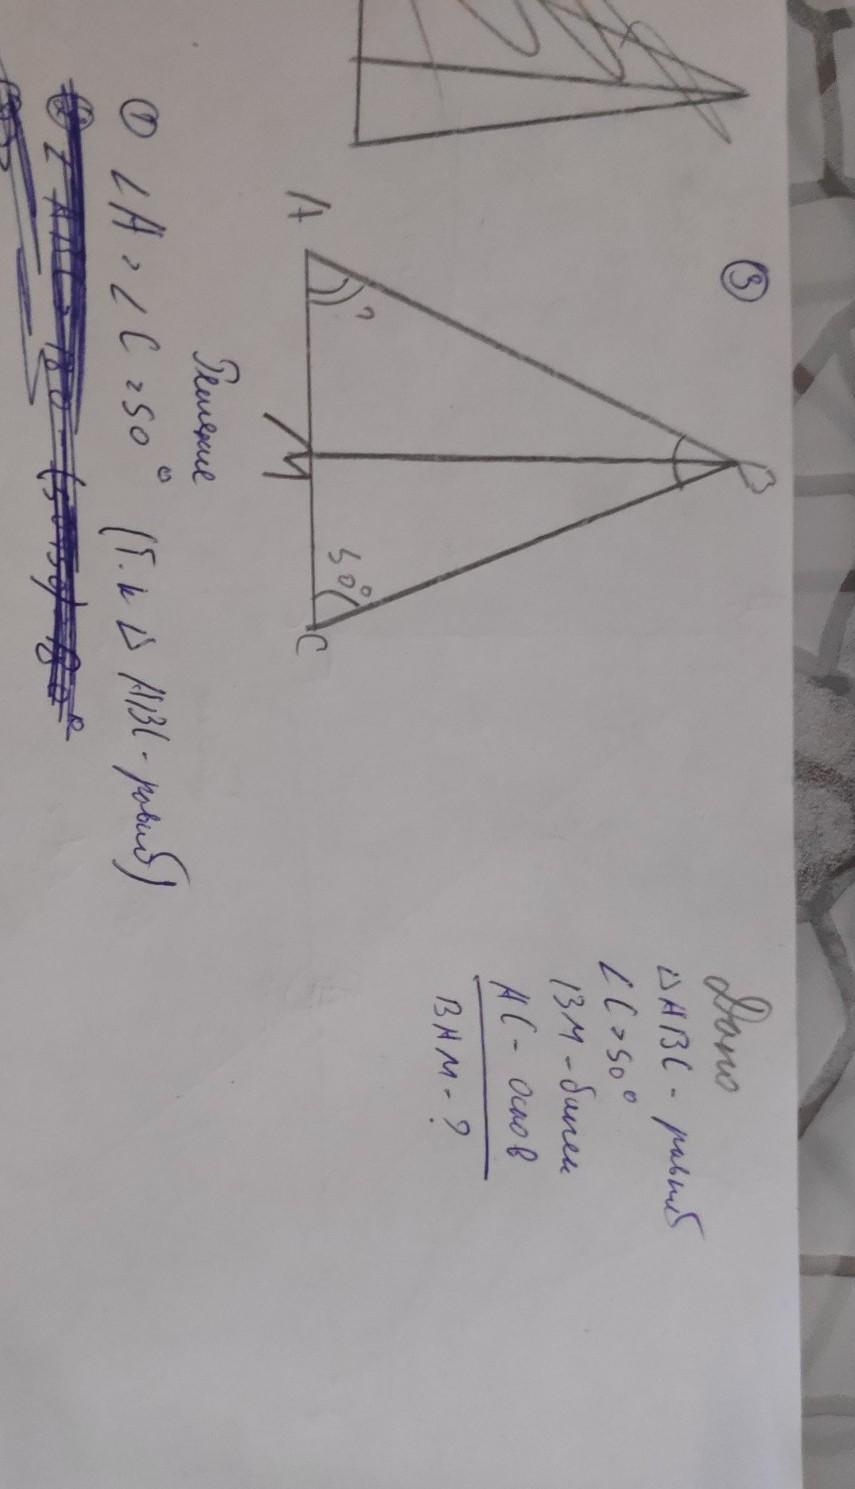 ③
B
A
?
50°
C
M
Дано
△ABC - равноб
∠C = 50°
BM - биссек
AC - основ
BAM - ?
Решение
① ∠A = ∠C = 50° (Т.к △ ABC - равноб)